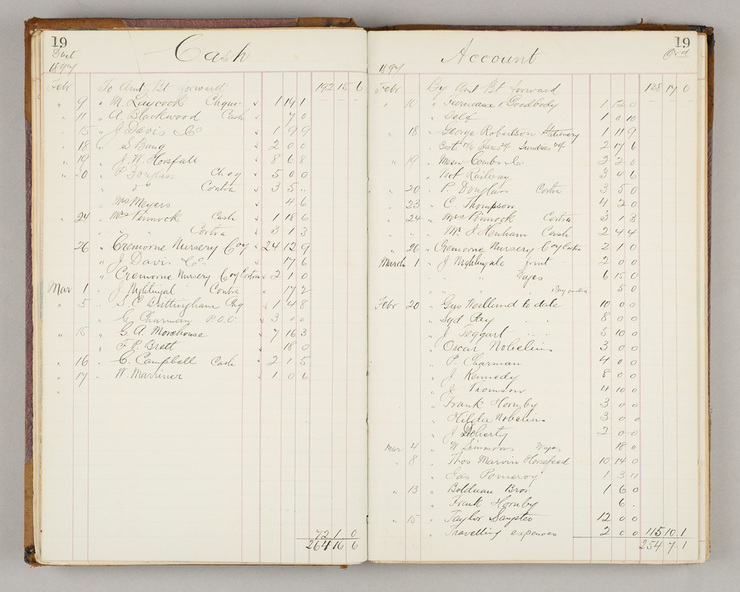 19
Cash
1897
Febr To Amt Bt forward 192 15 6
" 9 " M. Laycock Cheque " 1 19 1
" 11 " A. Blackwood Cash " 7 0
" 15 " J. Davis & Co " 1 9 9
" 18 " 2 0 0
" 19 " J. W. Horsfall " 8 6 8
" " Cheq " 5 0 0
" Contra " 3 5
Mrs Meyers " 4 6
" 24 " Mrs Pinnock Cash " 1 18 6
" Contra " 3 1 3
" 26 " Cremorne Nursery Coy " 24 12 9
" J. Davis Co. " 17 6
" Cremorne Nursery Coy Contra " 2 1 0
Mar 1 " J. Nightingal Contra " 17 2
" 5 " Brittingham Chq " 1 4 8
" Charman P.O.O. " 3
" 15 " G. A. Morehouse " 7 16 3
" Brett 18 0
" 16 " C. Campbell Cash " 2 1 5
" 17 " W. Marriner " 1 0 6
72 1 0
264 16 6
19
Account
Cr
1897
Febr By Amt Bt forward 128 17 0
" 10 " & Goodbody 1 12 0
" Self 1 0 10
" 18 " George Robertson Stationery 1 11 9
2 17 6
" 19 " Co 2 2 0
" Vict Railway 3 4 6
" 20 " P. Douglass Contra 3 5 0
" 23 " C. Thompson 4 2 0
" 24 " Mrs Pinnock Contra 3 1 3
" Mr Henham Cash 2 4 4
" 26 " Cremorne Nursery Coy Contra 2 1 0
March 1 " J. Nightingale 2 0 0
" Wages 6 15 0
5 0
Febr 20 " Gus Wedland to date 10 0 0
" Syd Fry 8 0 0
" J. Taggart 5 10 0
" Oscar Nobelius 3 0 0
" P. Charman 4 0 0
" J. Kennedy 8 0 0
" J. Thomson 4 10 0
" Frank Hornby 3 0 0
" Hilda Nobelius 3 0 0
" J. Doherty 2 0 0
Mar 4 " W. Simmons Wages 18 0
" 8 " Thos Marvin Horsfeed 10 14 0
Pomeroy 1 3
" 13 " Boldman Bros 1 6 0
" Frank Hornby 6
" 15 " Taylor Sangster 12 0 0
" Travelling expenses 2 0 0 115 10 1
254 7 1